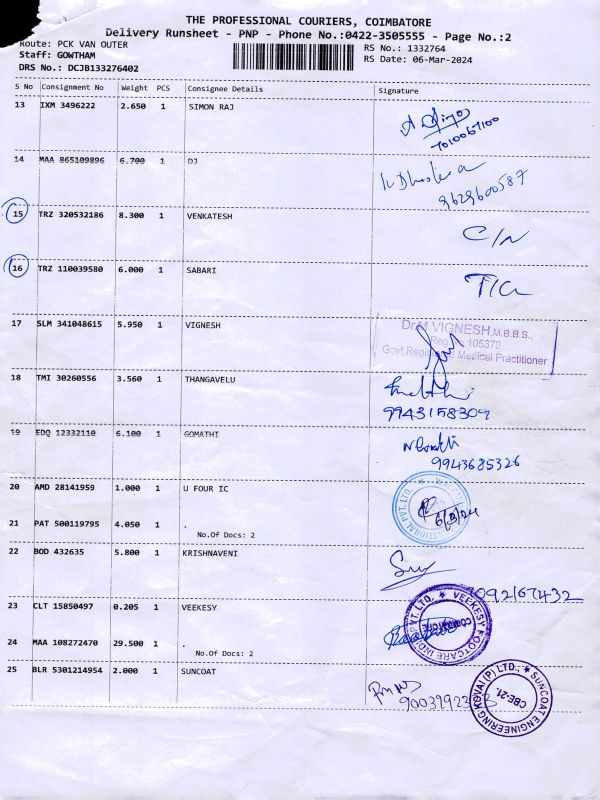 THE PROFESSIONAL COURIERS, COIMBATORE
Delivery Runsheet - PNP - Phone No.:0422-3505555 - Page No.:2
Route: PCK VAN OUTER
RS No.: 1332764
Staff: GOWTHAM
RS Date: 06-Mar-2024
DRS No.: DCJB133276402
S No Consignment No Weight PCS Consignee Details Signature
13 IXM 3496222 2.650 1 SIMON RAJ
7010067100
14 MAA 865109896 6.700 1 DJ
9629600587
15 TRZ 320532186 8.300 1 VENKATESH C/N
16 TRZ 110039580 6.000 1 SABARI
17 SLM 341048615 5.950 1 VIGNESH
Dr.M.VIGNESH,M.B.B.S.,
105379
Govt.Registered Medical Practitioner
18 TMI 30260556 3.560 1 THANGAVELU
9943158309
19 EDQ 12332110 6.100 1 GOMATHI
9943685326
20 AMD 28141959 1.000 1 U FOUR IC
6/3/24
21 PAT 500119795 4.050 1 .
No.Of Docs: 2
22 BOD 432635 5.800 1 KRISHNAVENI
092167432
23 CLT 15850497 0.205 1 VEEKESY
VEEKESY FOOTCARE INDIA PVT. LTD.
24 MAA 108272470 29.500 1 .
No.Of Docs: 2
25 BLR 5301214954 2.000 1 SUNCOAT
SUNCOAT ENGINEERING KOVAI (P) LTD.,
CBE-21.